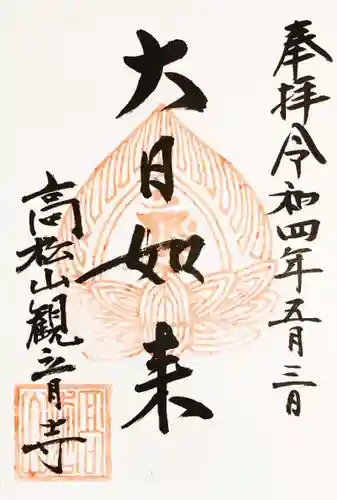 奉拝 令和四年五月三日
大日如来
高松山観音寺